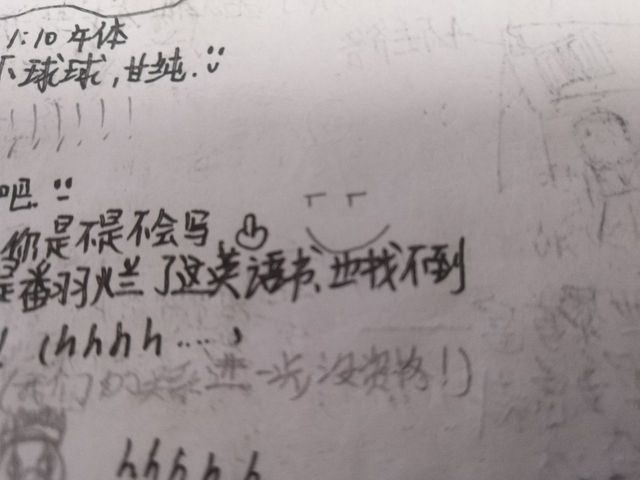 1:10 午休
不球球,甘纯.
!!!!!!
吧.
你是不是不会写
是翻烂了这英语书、也找不到
! (hhhh....,
(我们的关系进一步没资格!)
hhhhh